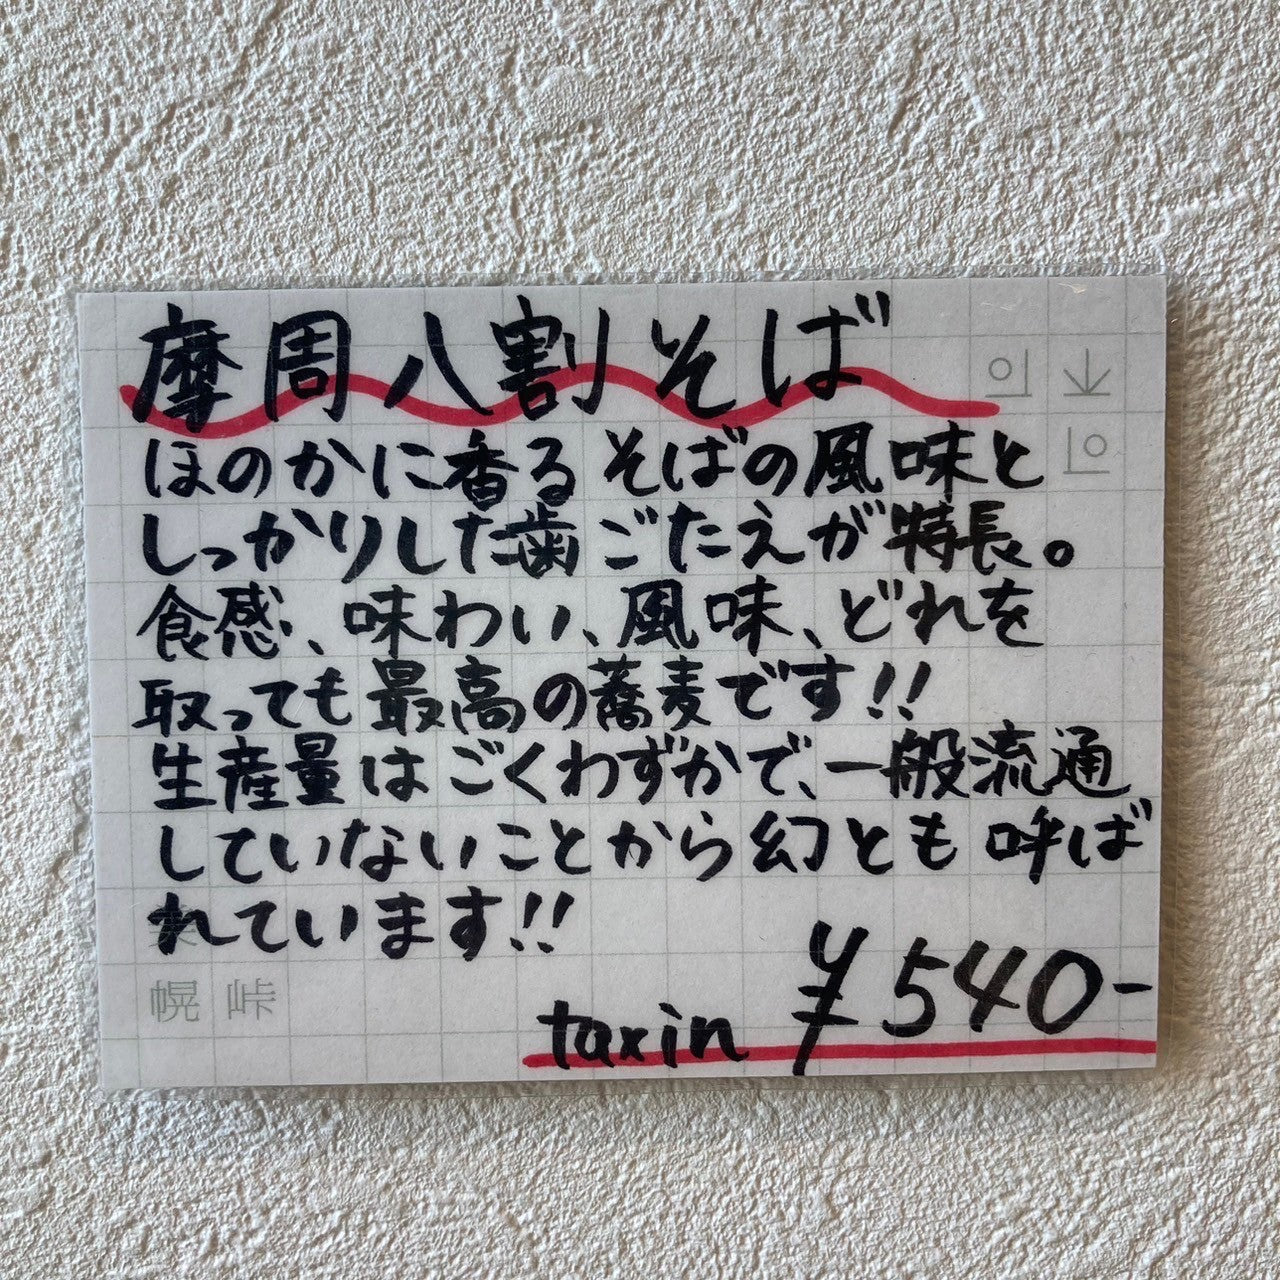 摩周八割そば
ほのかに香るそばの風味と
しっかりした歯ごたえが特長。
食感、味わい、風味、どれを
取っても最高の蕎麦です!!
生産量はごくわずかで、一般流通
していないことから幻とも呼ば
れています!!
taxin ¥540-
美
幌峠